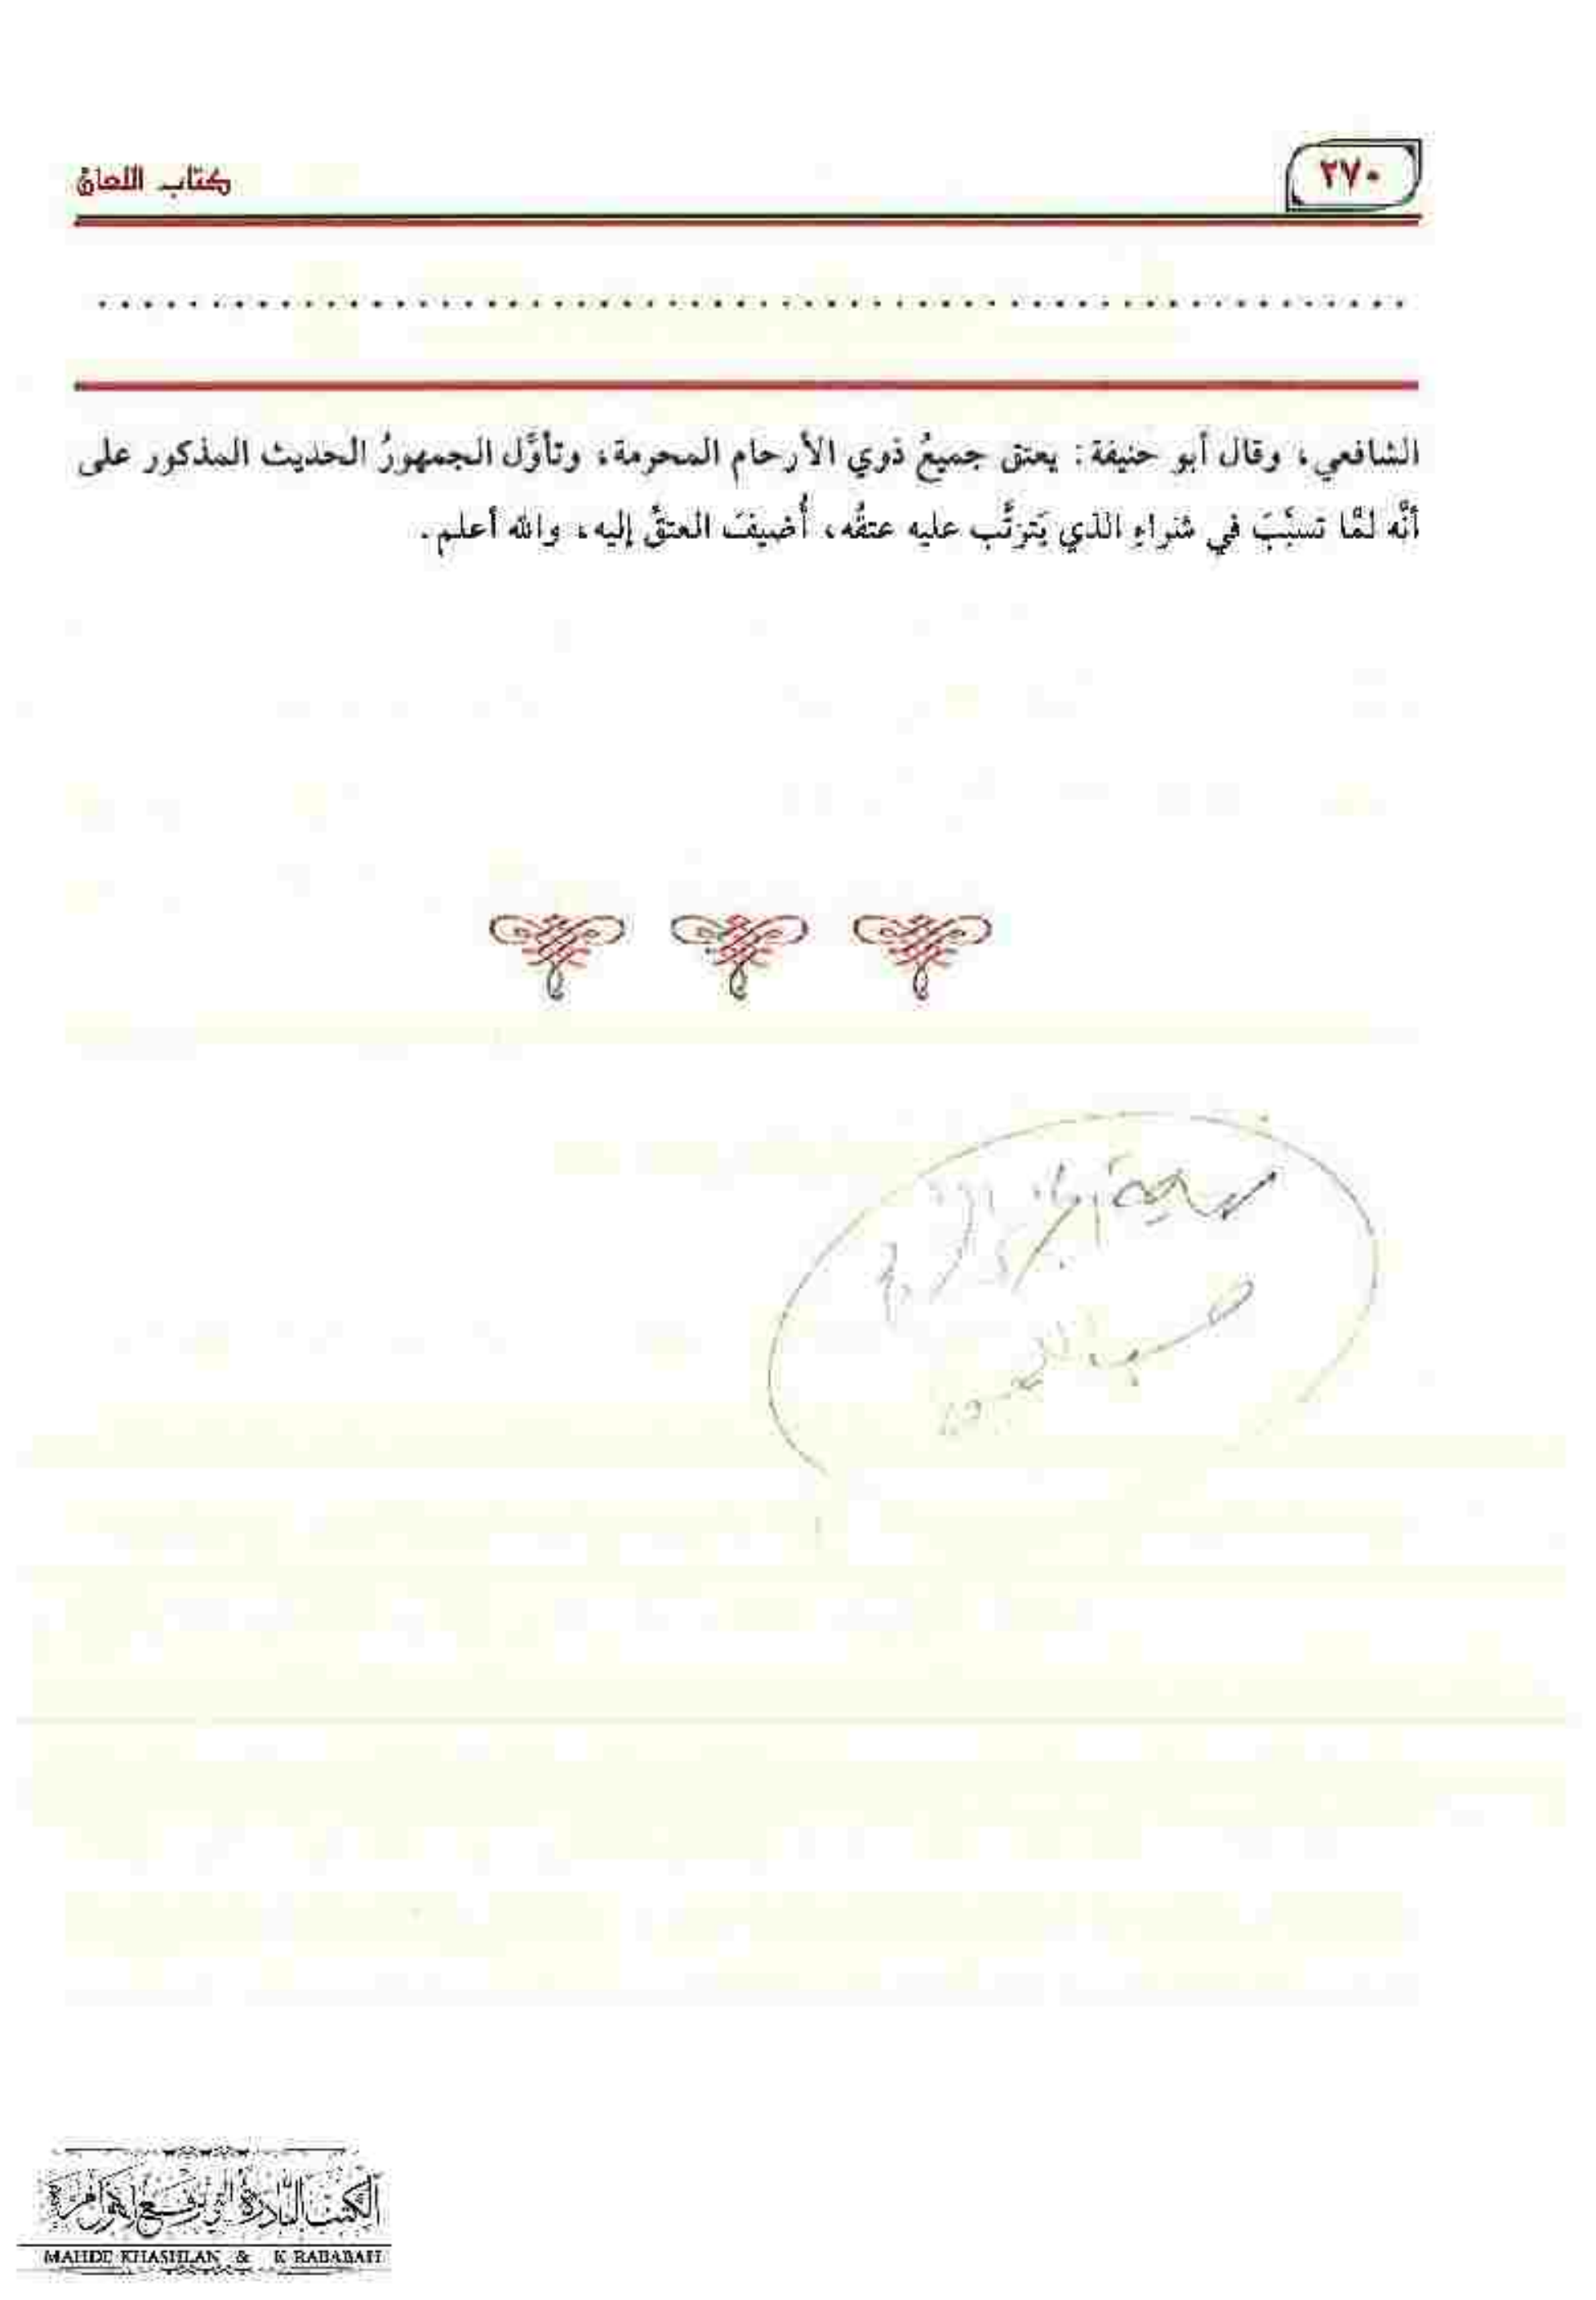 ٢٧٠
كتاب اللعان
الشافعي، وقال أبو حنيفة: يعتق جميعُ ذوي الأرحام المحرمة، وتأوَّل الجمهورُ الحديث المذكور على
أنَّه لمَّا تسبَّبَ في شراءِ الذي يَترتَّب عليه عتقُه، أُضيفَ العتقُ إليه، والله أعلم.
MAHDE KHASHLAN & K RABABAH